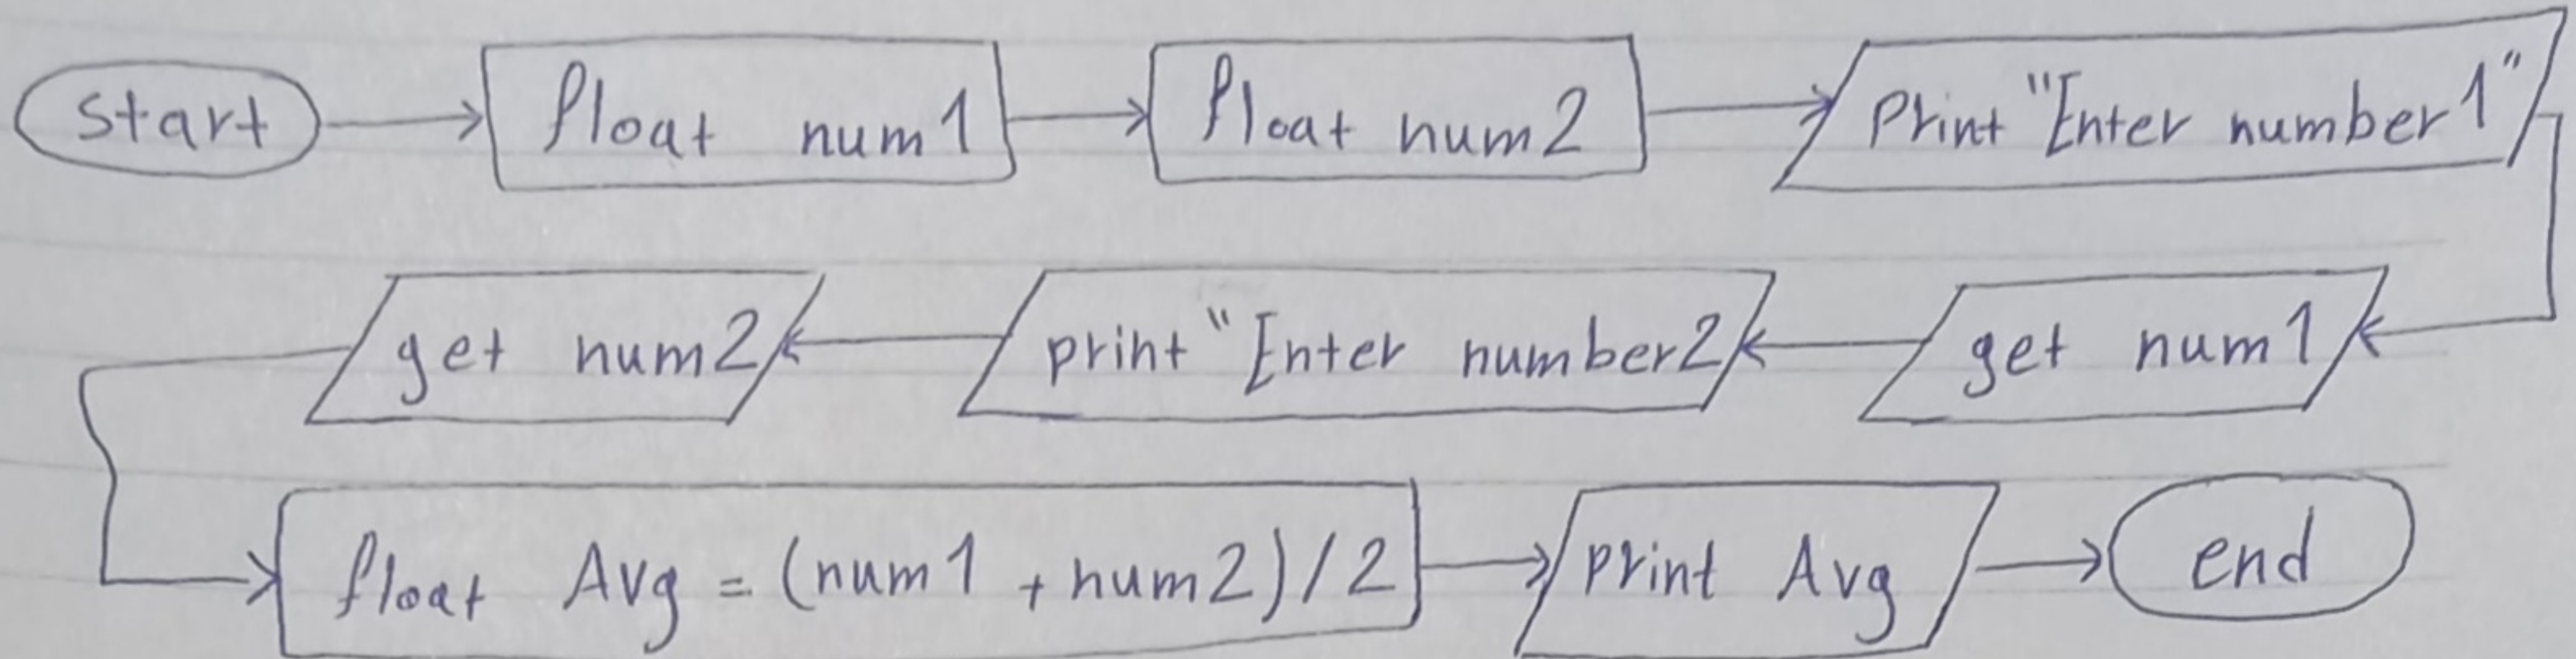 start float num1 float num2 Print "Enter number1"
get num2 print "Enter number2 get num1
float Avg = (num1 + num2)/2 print Avg end